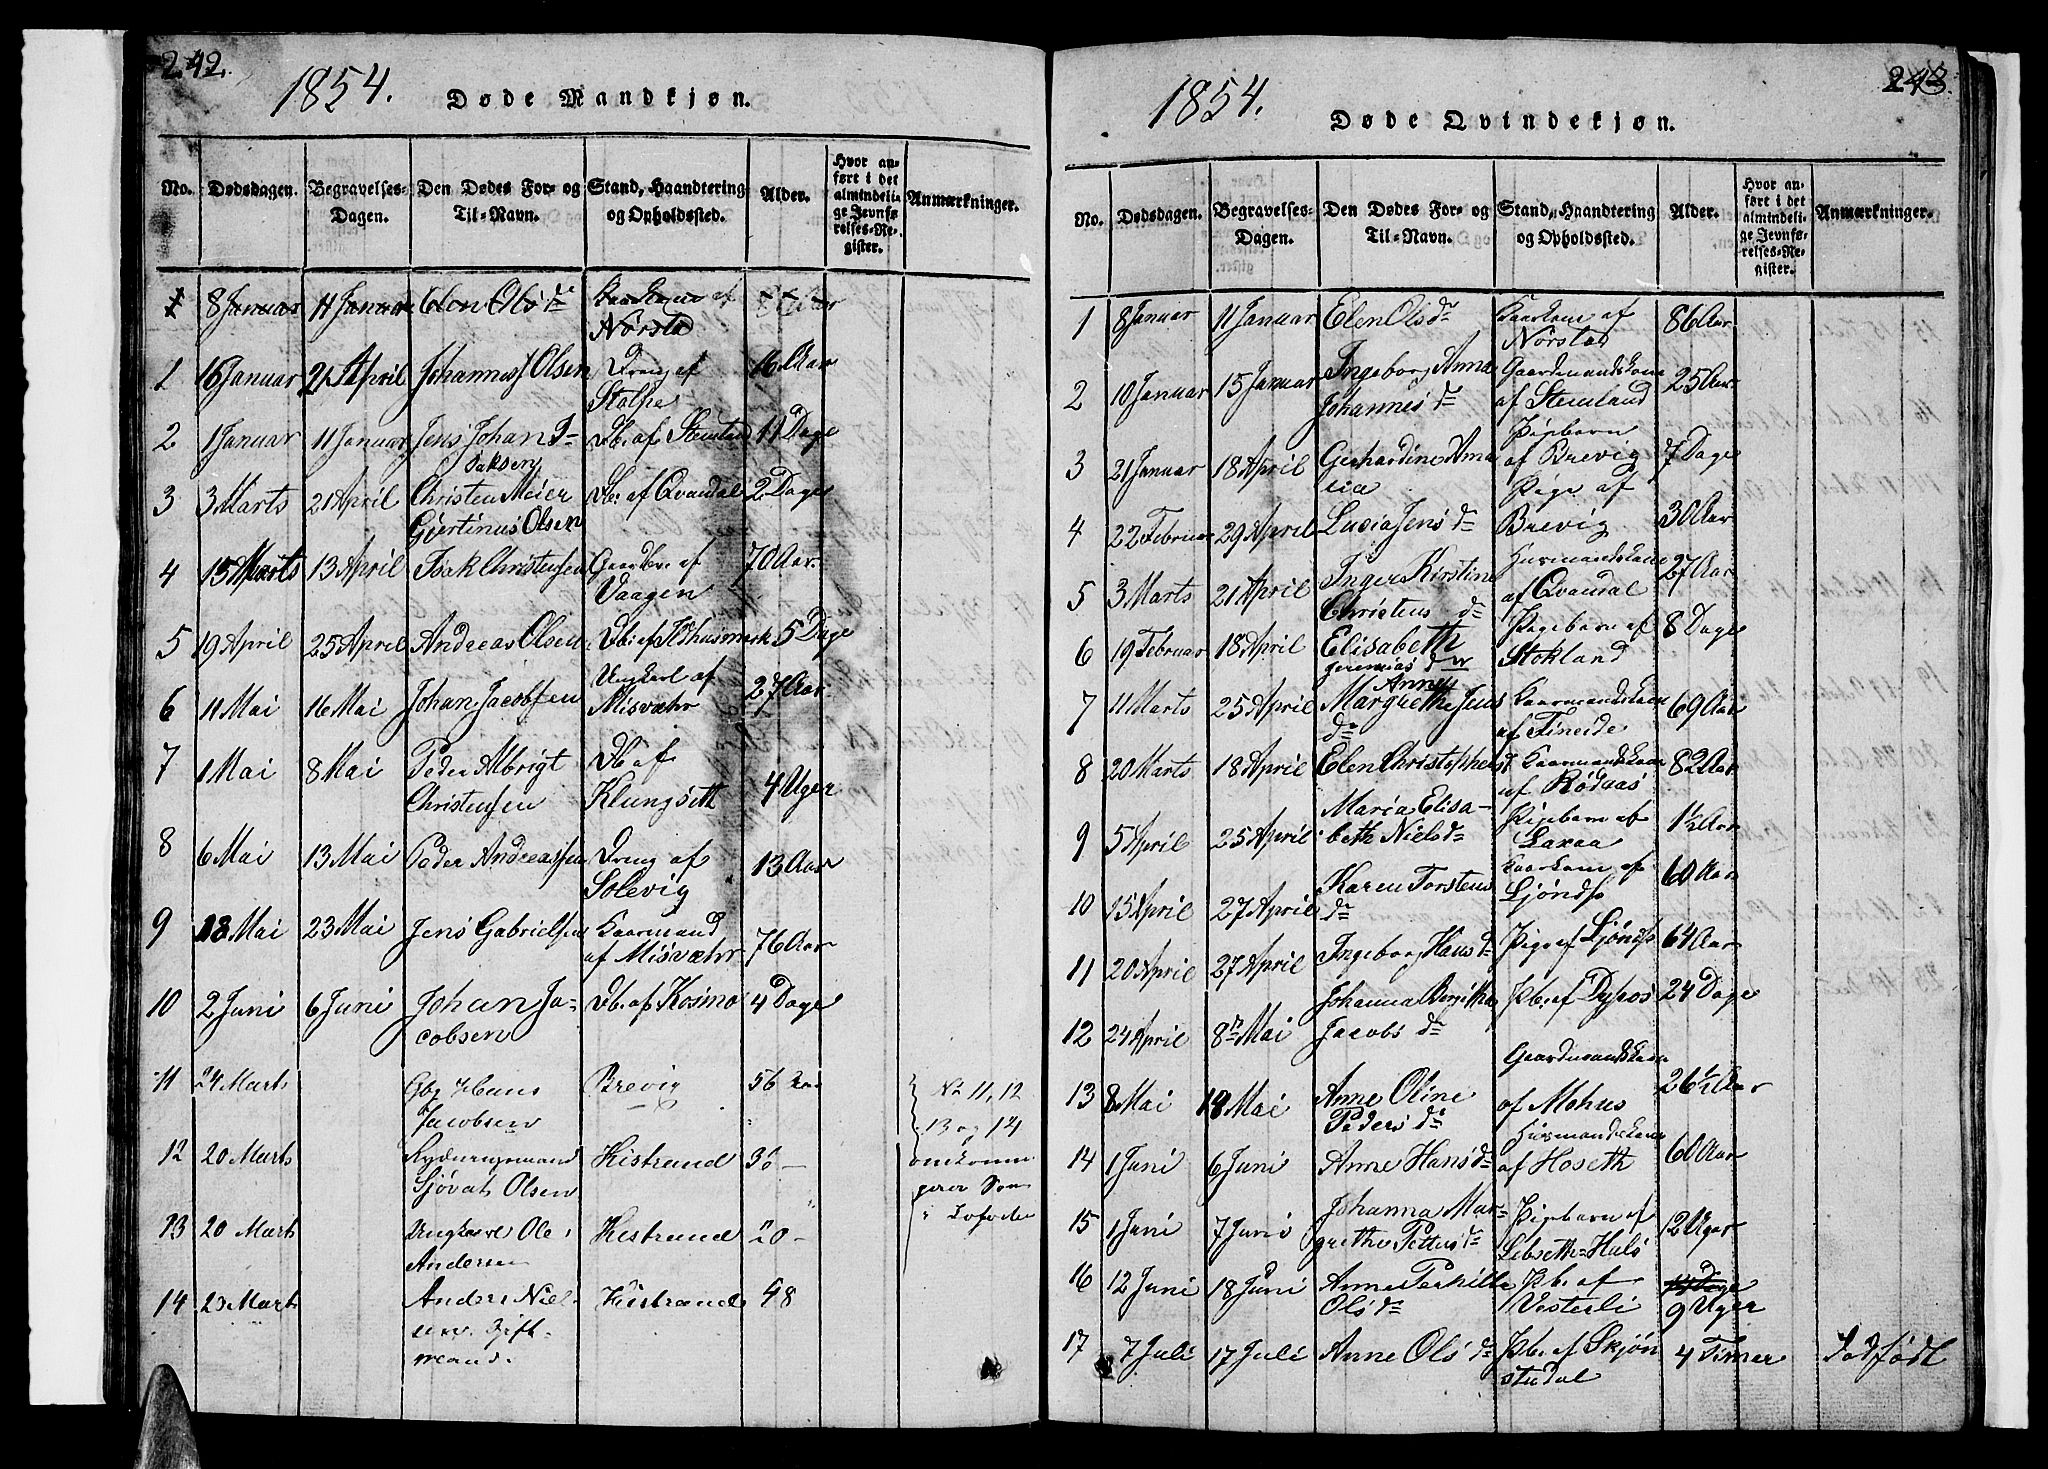 242.
1854. Døde Mandkjøn.
No. Dødsdagen. Begravelses-Dagen. Den Dødes For- og Til-Navn. Stand, Haandtering og Opholdssted. Alder. Hvor anført i det almindelige Jevnførelses-Register. Anmærkninger.
1 8 Januar 11 Januar Elen Olsdr Kaarkone af Norstad
1 16 Januar 21 April Johannes Olsen Dreng af Stolpe 16 Aar
2 1 Januar 11 Januar Jens Johan Isaksen Db. af Stemland 11 Dage
3 3 Marts 21 April Christen Meier Gjertinus Olsen Db. af Qvandal 2 Dage
4 15 Marts 13 April Isak Christensen Gaardbr. af Vaagen 70 Aar
5 19 April 25 April Andreas Olsen Db. af 5 Dage
6 11 Mai 16 Mai Johan Jacobsen Ungkarl af Misvæhr 27 Aar
7 1 Mai 8 Mai Peder Albrigt Christensen Db af Klungseth 4 Uger
8 6 Mai 13 Mai Peder Andreassen Dreng af Solevig 13 Aar
9 18 Mai 23 Mai Jens Gabrielsen Kaarmand af Misvæhr 76 Aar
10 2 Juni 6 Juni Johan Jacobsen Db. af Kosmo 4 Dage
11 24 Marts Gbr Hans Jacobsen Brevig 56
12 20 Marts Sjøvat Olsen Kistrand 36
13 20 Marts Ungkarl Ole Andersen Kistrand 20
14 20 Marts Anders Nielsen. Gift-mand. Kistrand 48
No 11, 12
13 og 14
omkomne
i Lofoden
243.
1854. Døde Qvindekjøn.
No. Dødsdagen. Begravelses-Dagen. Den Dødes For- og Til-Navn. Stand, Haandtering og Opholdssted. Alder. Hvor anført i det almindelige Jevnførelses-Register. Anmærkninger.
1 8 Januar 11 Januar Elen Olsdr Kaarkone af Norstad 86 Aar
2 10 Januar 15 Januar Ingeborg Anna Johannesdr Gaardmandskone af Stemland 25 Aar
3 21 Januar 18 April Gerhardine Amalia Pigebarn af Brevig 7 Dage
4 22 Februar 29 April Lucia Jensdr Pige af Brevig 30 Aar
5 3 Marts 21 April Inger Kirstine Christensdr Husmandskone af Qvandal 27 Aar
6 19 Februar 18 April Elisabeth Jeremiasdr Pigebarn af Stokland 8 Dage
7 11 Marts 25 April Anne Margrethe Jensdr Kaarmandskone af Fineide 69 Aar
8 20 Marts 18 April Elen Christophersdr Kaarmandskone af Rødaas 82 Aar
9 5 April 25 April Maria Elisabeth Nielsdr Pigebarn af Laxaa 1½ Aar
10 15 April 27 April Karen Torstensdr Kaarkone af Ljønæs 60 Aar
11 20 April 27 April Ingeborg Hansdr Pige af Ljønæs 64 Aar
12 24 April 8de Mai Johanna Bergitha Jacobsdr Pb. af 24 Dage
13 8 Mai 18 Mai Anne Oline Pedersdr Gaardmandskone af Mohus 26½ Aar
14 1 Juni 6 Juni Anne Hansdr Husmandskone af Hoseth 60 Aar
15 1 Juni 7 Juni Johanna Margrethe Pettersdr Pigebarn af Lebseth-Hals 12 Uger
16 12 Juni 18 Juni Anne Pernille Olsdr Pb. af Vesterli 9 Uger
17 7 Juli 17 Juli Anne Olsdr Pb. af Skjønstudal 4 Timer Dødfødt